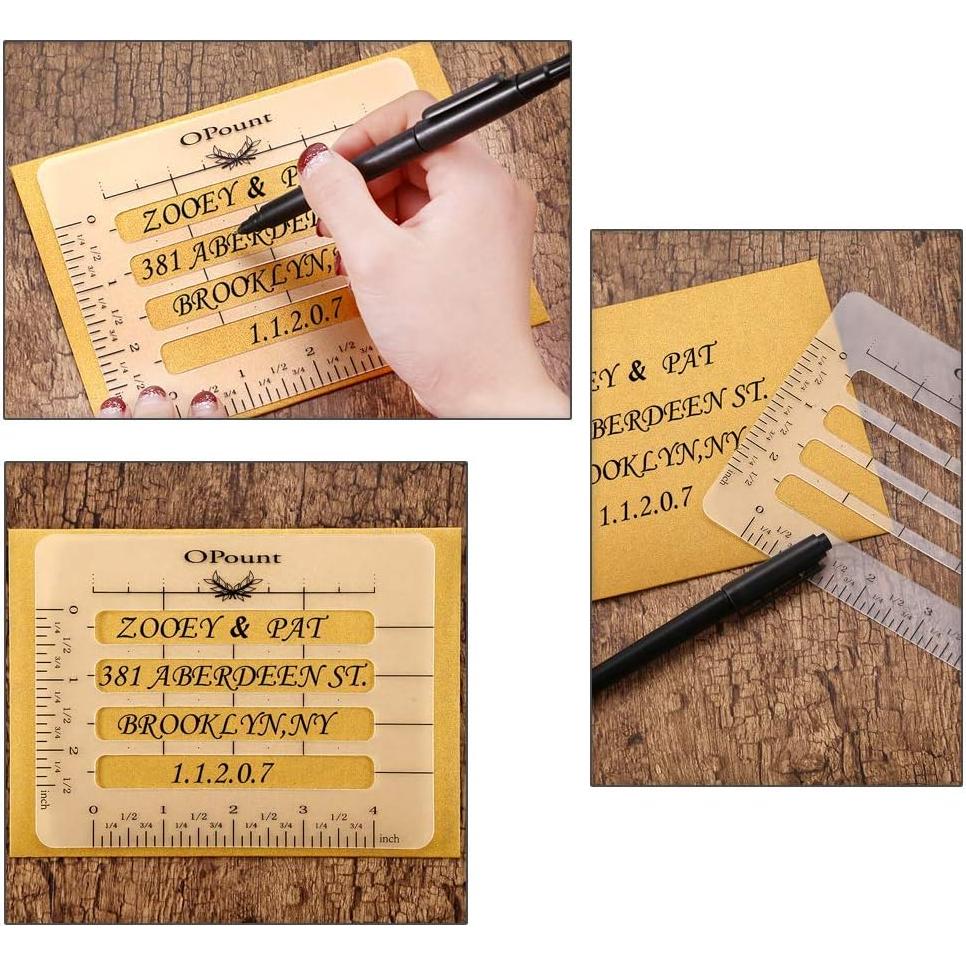 OPount
ZOOEY & P
381 ABERDEE
BROOKLYN,
1.1.2.0.7
0
1/4
1/2
3/4
1
1/4
1/2
3/4
2
1/4
1/2
1
1/4
1/2
3/4
2
1/4
1/2
3/4
EY & PAT
BERDEEN ST.
OOKLYN,NY
1.1.2.0.7
0
1/4
1/2
3/4
1
1/4
1/2
3/4
2
1/4
1/2
inch
0
1/4
1/2
1/2
3/4
2
1/4
1/2
3/4
3
1/4
1/2
OPount
ZOOEY & PAT
381 ABERDEEN ST.
BROOKLYN,NY
1.1.2.0.7
0
1/4
1/2
3/4
1
1/4
1/2
3/4
2
1/4
1/2
inch
0 1 2 3 4
1/4 1/2 3/4 1/4 1/2 3/4 1/4 1/2 3/4 1/4 1/2 3/4 inch